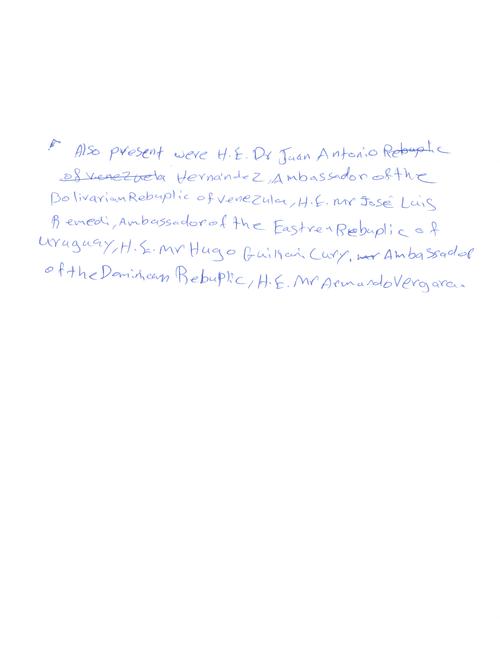 Also present were H.E. Dr Juan Antonio Rebuplic
of venezuela Hernández, Ambassador of the
Bolivarian Rebuplic of venezula, H.E. Mr José Luis
Remedi, Ambassador of the Eastren Rebuplic of
Uruguay, H.E. Mr Hugo Guiliani Cury, mr Ambassador
of the Dominican Rebuplic, H.E. Mr Armando Vergara.